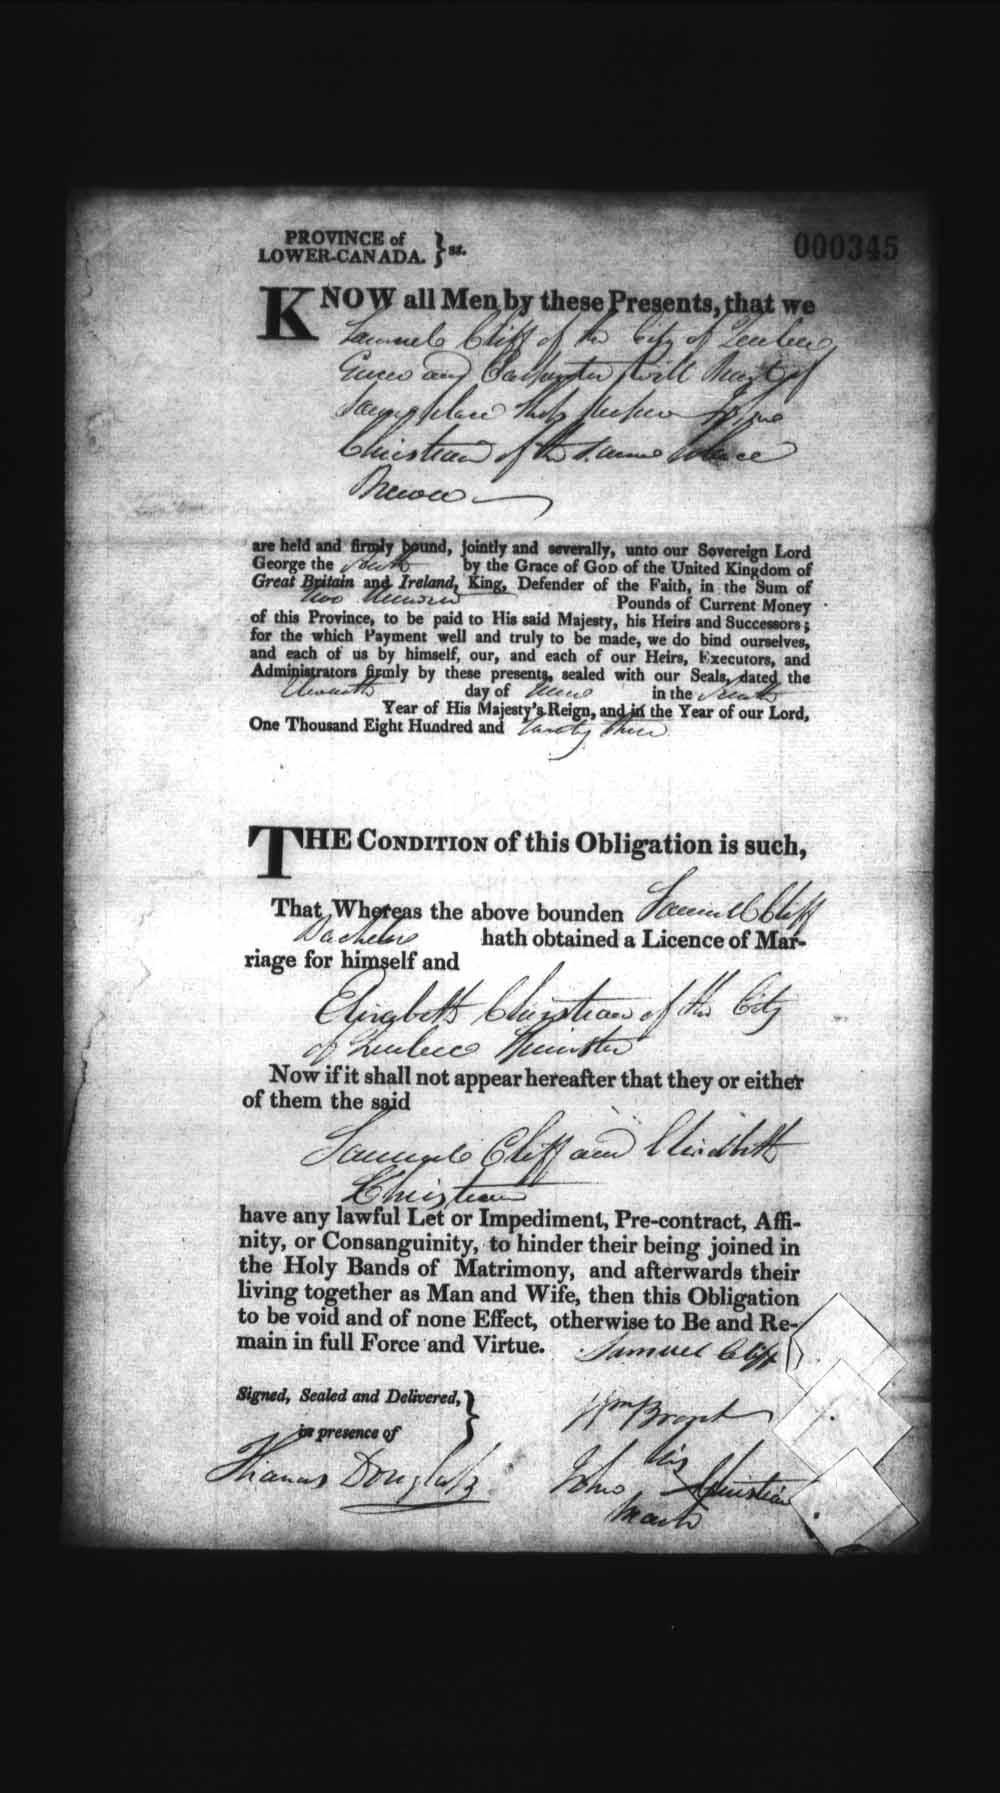 PROVINCE of
LOWER-CANADA. } ss.
000345
KNOW all Men by these Presents, that we
Samuel Cliff of the City of Quebec
and Carpenter of
Same place John
Christian of the Same place
are held and firmly bound, jointly and severally, unto our Sovereign Lord
George the fourth by the Grace of GOD of the United Kingdom of
Great Britain and Ireland, King, Defender of the Faith, in the Sum of
two hundred Pounds of Current Money
of this Province, to be paid to His said Majesty, his Heirs and Successors;
for the which Payment well and truly to be made, we do bind ourselves,
and each of us by himself, our, and each of our Heirs, Executors, and
Administrators firmly by these presents, sealed with our Seals, dated the
day of June in the fourth
Year of His Majesty's Reign, and in the Year of our Lord,
One Thousand Eight Hundred and twenty three
THE CONDITION of this Obligation is such,
That Whereas the above bounden Samuel Cliff
Bachelor hath obtained a Licence of Mar-
riage for himself and
Elizabeth Christian of the City
of Quebec Spinster
Now if it shall not appear hereafter that they or either
of them the said
Samuel Cliff and Elizabeth
Christian
have any lawful Let or Impediment, Pre-contract, Affi-
nity, or Consanguinity, to hinder their being joined in
the Holy Bands of Matrimony, and afterwards their
living together as Man and Wife, then this Obligation
to be void and of none Effect, otherwise to Be and Re-
main in full Force and Virtue.
Samuel Cliff
Signed, Sealed and Delivered, }
in presence of
Wm
Thomas Douglas
his
John Christian
mark